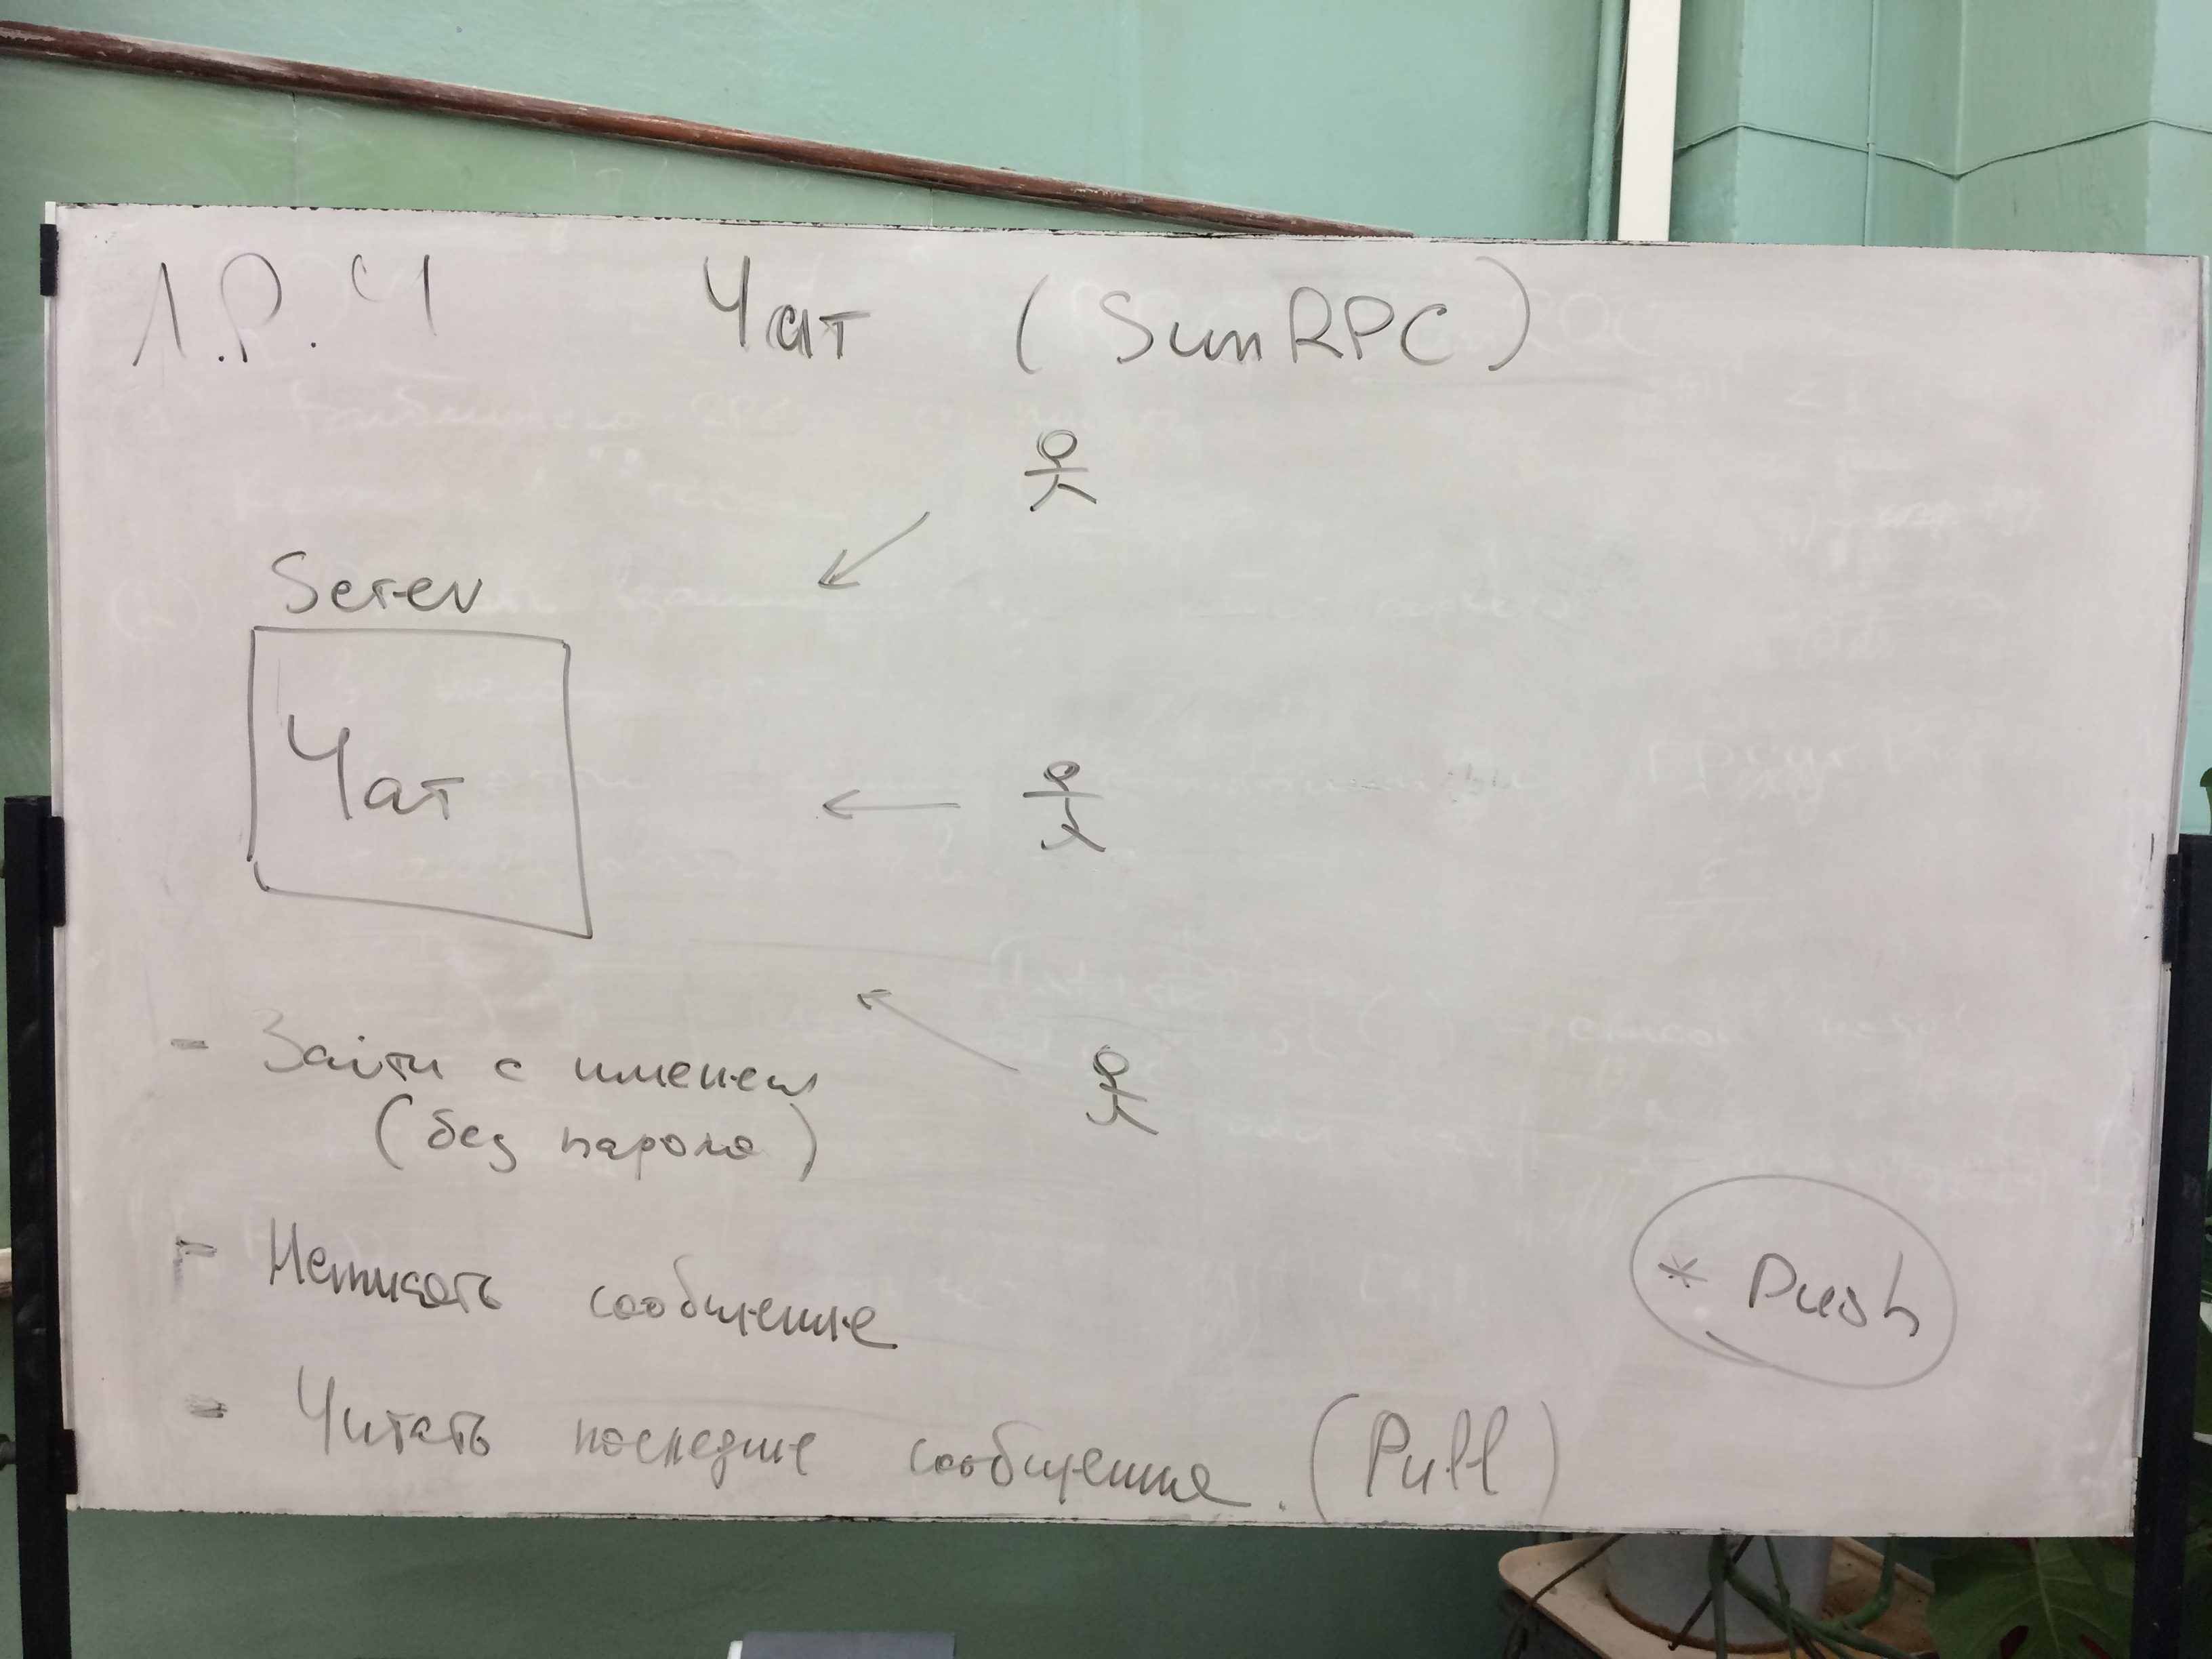 Л.Р. 4 Чат (SunRPC)
Server
Чат
- Зайти с именем
(без пароля)
- Написать сообщение
- Читать последние сообщение. (Pull)
* Push